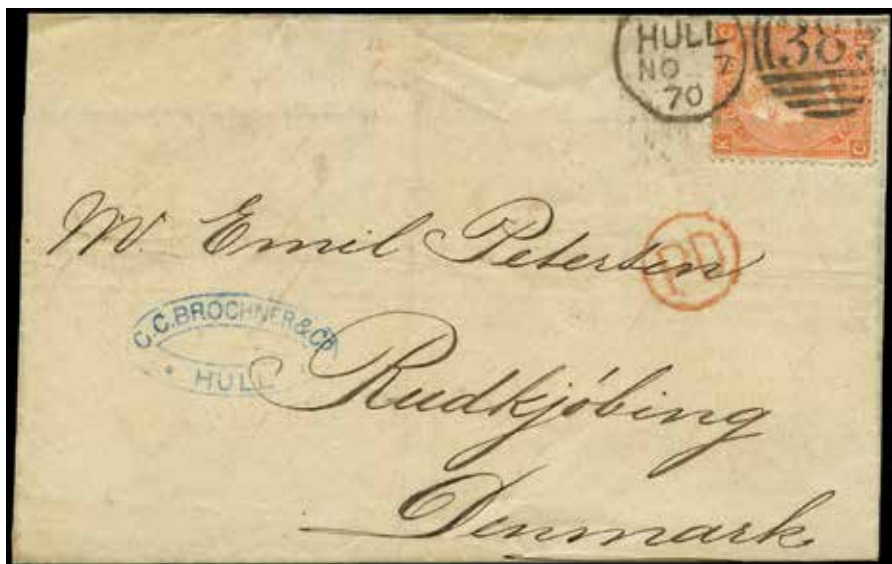 HULL
NO 7
70
383
K
C
C
Mr. Emil Petersen
PD
C.C.BROCHNER&Co
HULL
Rudkjóbing
Denmark